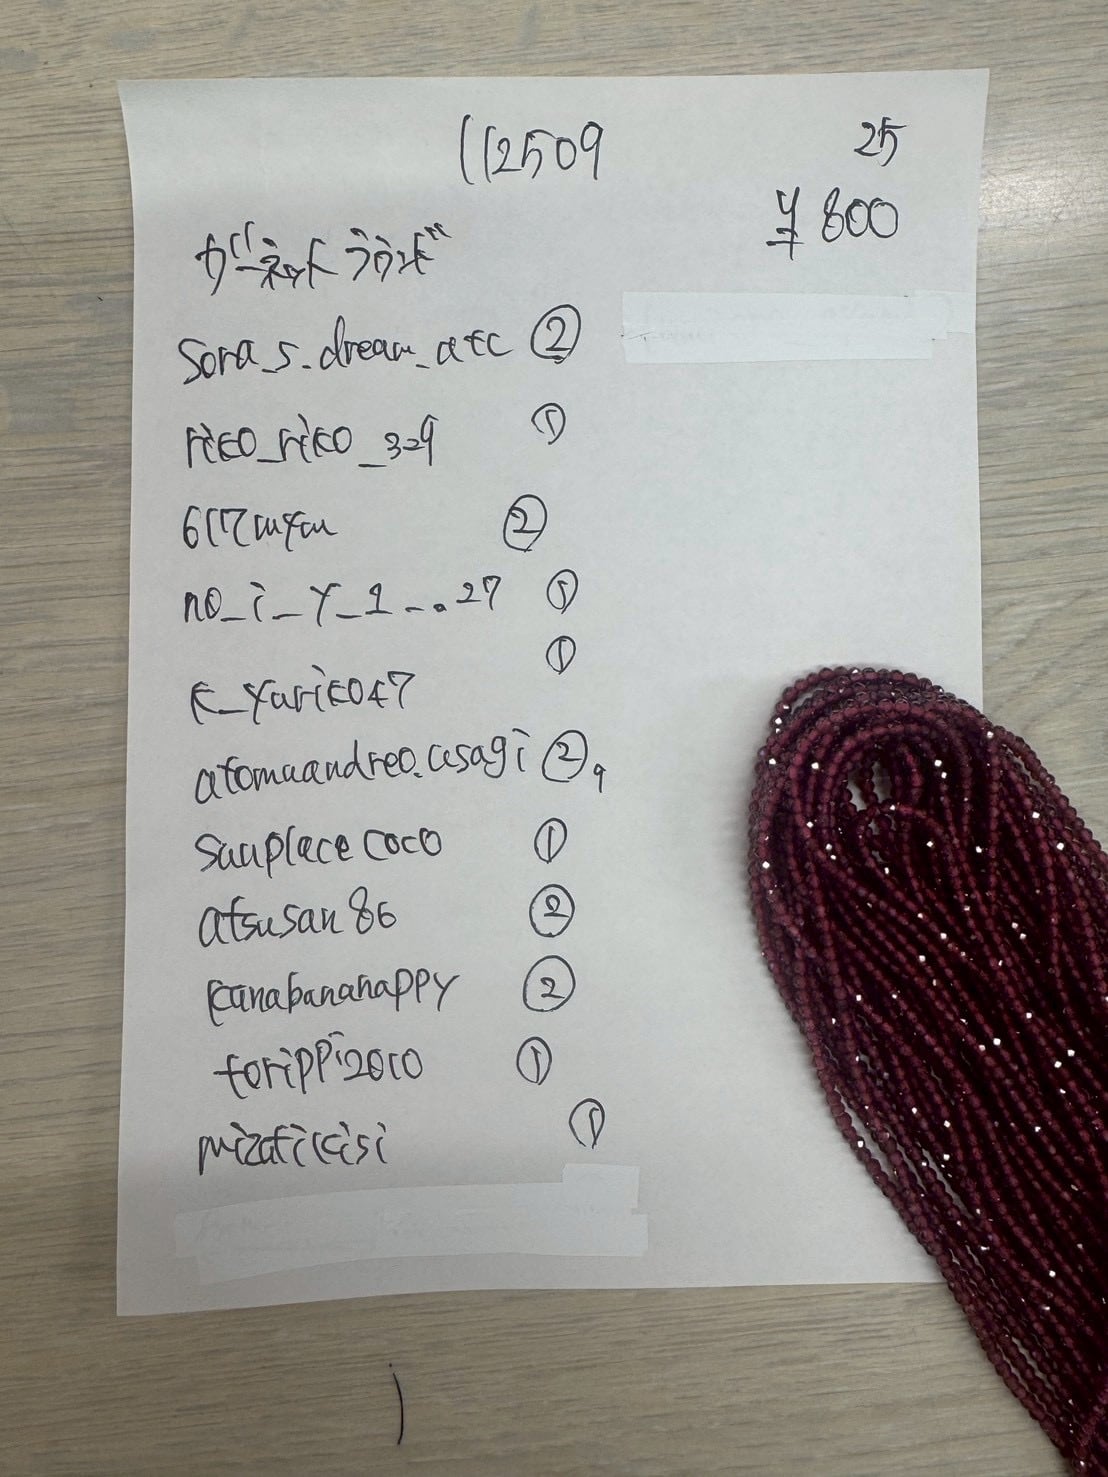 112509
25
¥800
ガーネットラウンド
Sora_s._dream_atc ②
riko_riko_329 ①
617mym ②
no_i_y_1_..27 ①
k_yuriko47 ①
atomuandreo.usagi ②
sunplace coco ①
atsusan86 ②
kanabananappy ②
torippi2010 ①
①